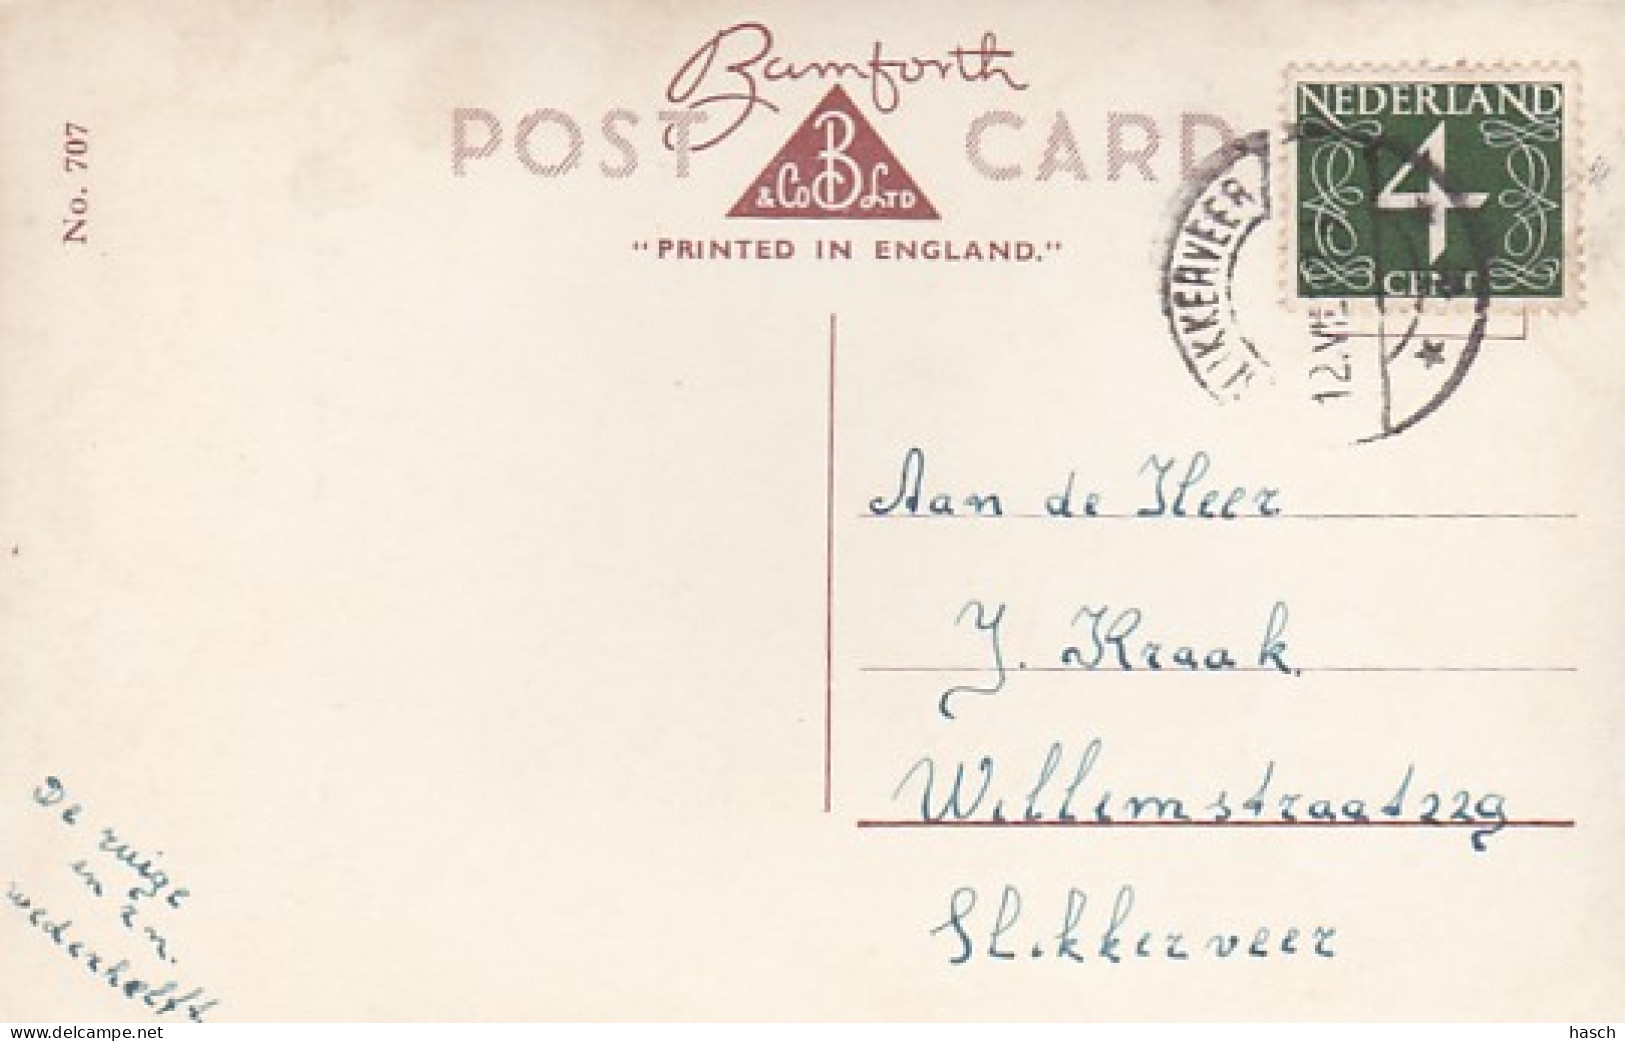 No. 707
Bamforth
POST CARD
B
& Co LTD
"PRINTED IN ENGLAND."
NEDERLAND
4
CENT
SLIKKERVEER
12.VII
Aan de Heer
J. Kraak.
Willemstraat 229
Slikkerveer
De ruige
en z'n.
wederhelft
www.delcampe.net
hasch